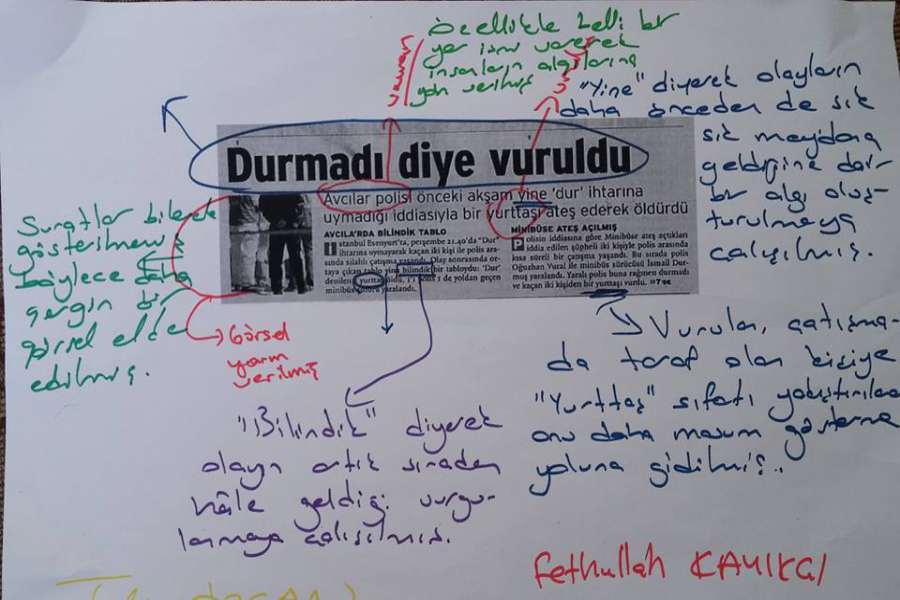 Özellikle belli bir
yer ismi vererek
insanların algılarına
yön verilmiş
"Yine" diyerek olayların
daha önceden de sık
sık meydana
geldiğine dair
bir algı oluş-
turulmaya
çalışılmış.
Durmadı diye vuruldu
Avcılar polisi önceki akşam yine 'dur' ihtarına
uymadığı iddiasıyla bir yurttaşı ateş ederek öldürdü
AVCILAR'DA BİLİNDİK TABLO
İstanbul Esenyurt'ta, perşembe 21.40'da "Dur"
ihtarına uymayarak kaçan iki kişi ile polis ara-
sında silahlı çatışma yaşandı. Olay sonrasında or-
taya çıkan tablo yine bilindik bir tabloydu: 'Dur'
denilen yurttaş öldü, de yoldan geçen
minibüs yaralandı.
MİNİBÜSE ATEŞ AÇILMIŞ
Polisin iddiasına göre Minibüse ateş açtıkları
iddia edilen şüpheli iki kişiyle polis arasında
kısa süreli bir çatışma yaşandı. Bu sırada polis
Oğuzhan Vural ile minibüs sürücüsü İsmail Dur-
muş yaralandı. Yaralı polis buna rağmen durmadı
ve kaçan iki kişiden bir yurttaşı vurdu. »7'de
Suratlar bilerek
gösterilmemiş
böylece daha
gergin bir
görsel elde
edilmiş.
Görsel
yarım
verilmiş
Vurulan, çatışma-
da taraf olan kişiye
"Yurttaş" sıfatı yakıştırılarak
onu daha masum gösterme
yoluna gidilmiş..
"Bilindik" diyerek
olayın artık sıradan
hâle geldiği vurgu-
lanmaya çalışılmış.
Fethullah KAYIKÇI